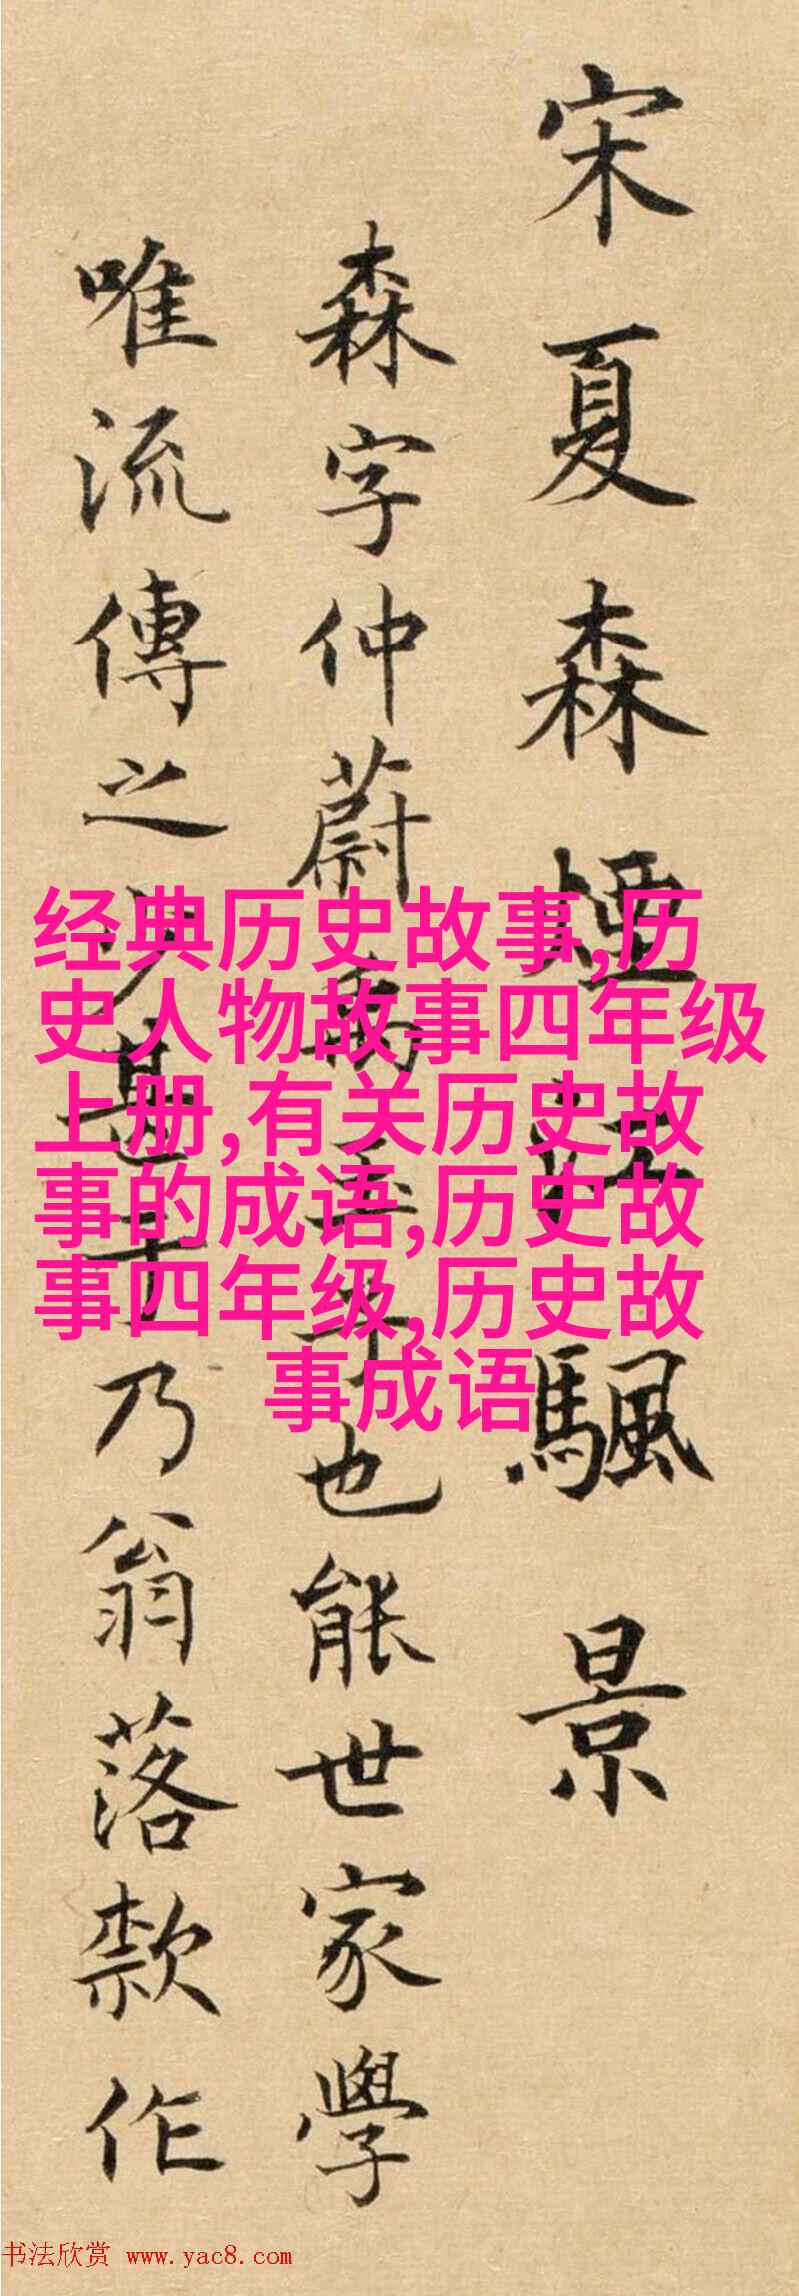 宋夏森煙江颿景
森字仲蔚禹玉子也能世家學
唯流傳之少甚乎乃翁落款作
经典历史故事,历
史人物故事四年级
上册,有关历史故
事的成语,历史故
事四年级,历史故
事成语
书法欣赏 www.yac8.com